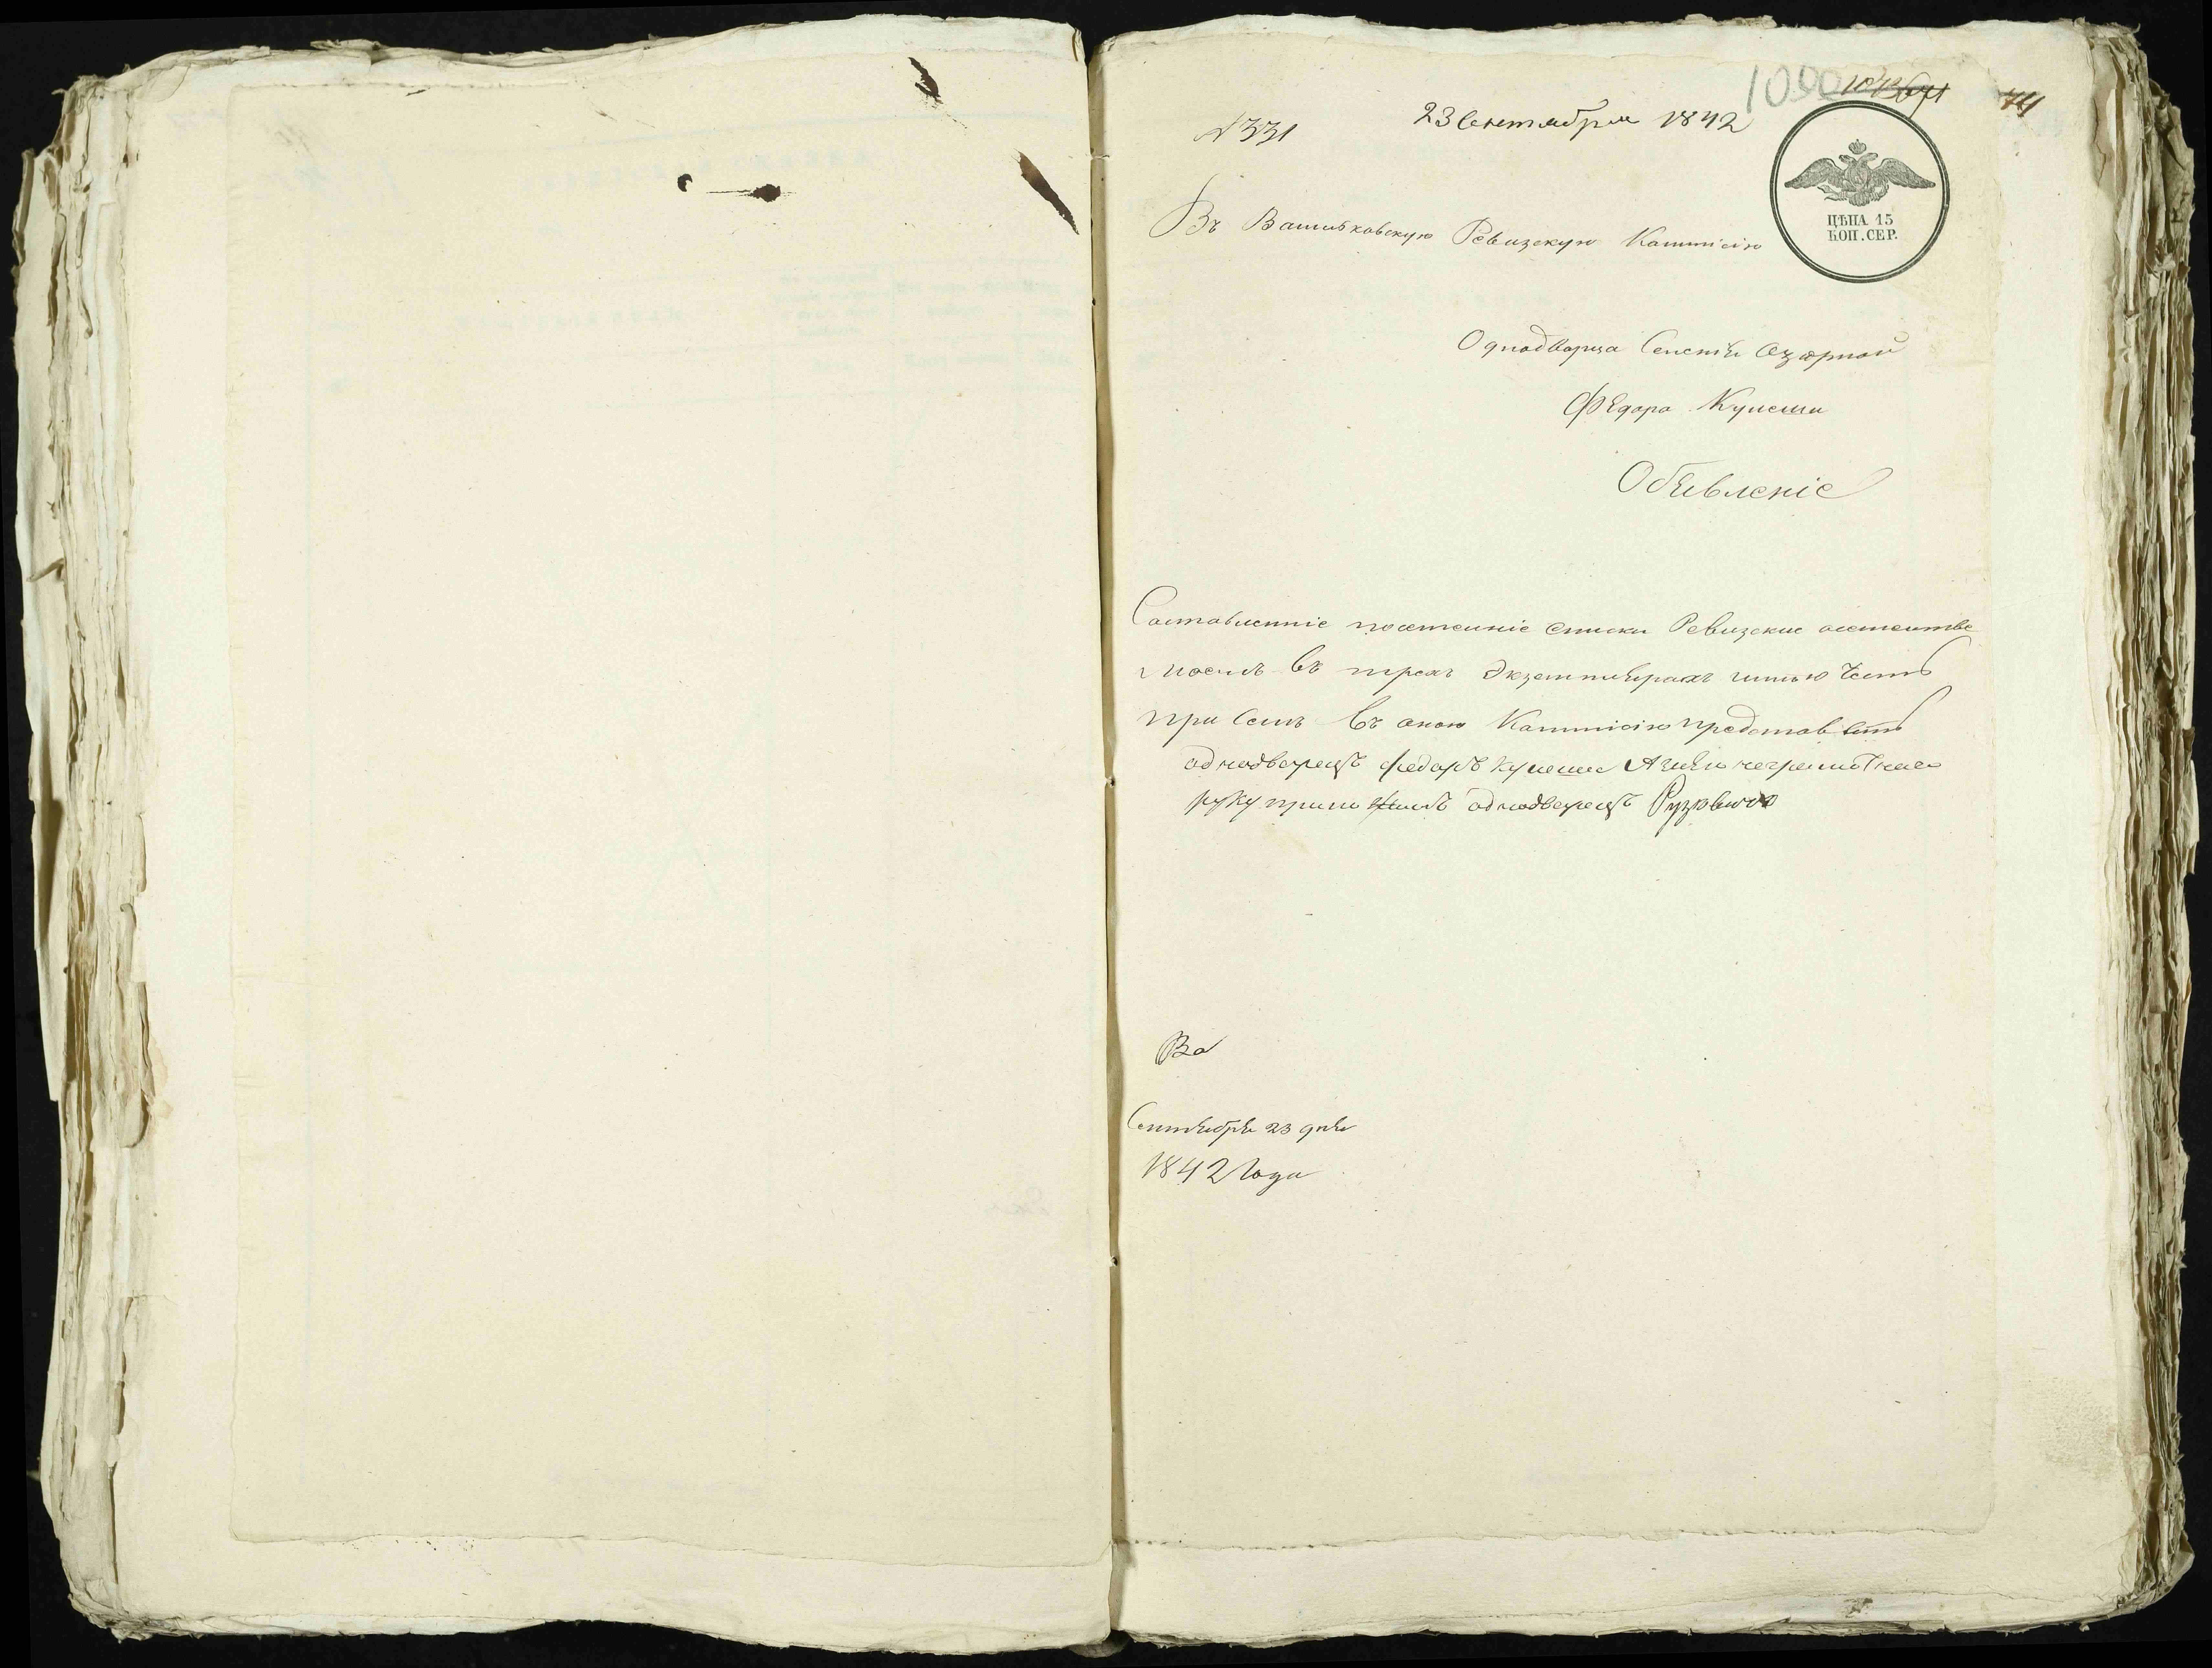 1090
№ 331
23 Сентября 1842
74
ЦѢНА 15
КОП. СЕР.
Въ Васильковскую Ревизскую Коммісію
Однодворца Селенія Озэрной
Федора Кулеши
Обявленіе
Составленніе посемейніе списки Ревизские о семействе
моемъ въ трехъ экземплярахъ имею честь
при семъ въ оною Коммісію представить
однодворецъ федоръ кулеша А за его неграмотнаго
руку приложилъ однодворецъ
Ва
Сентября 23 дня
1842 Года